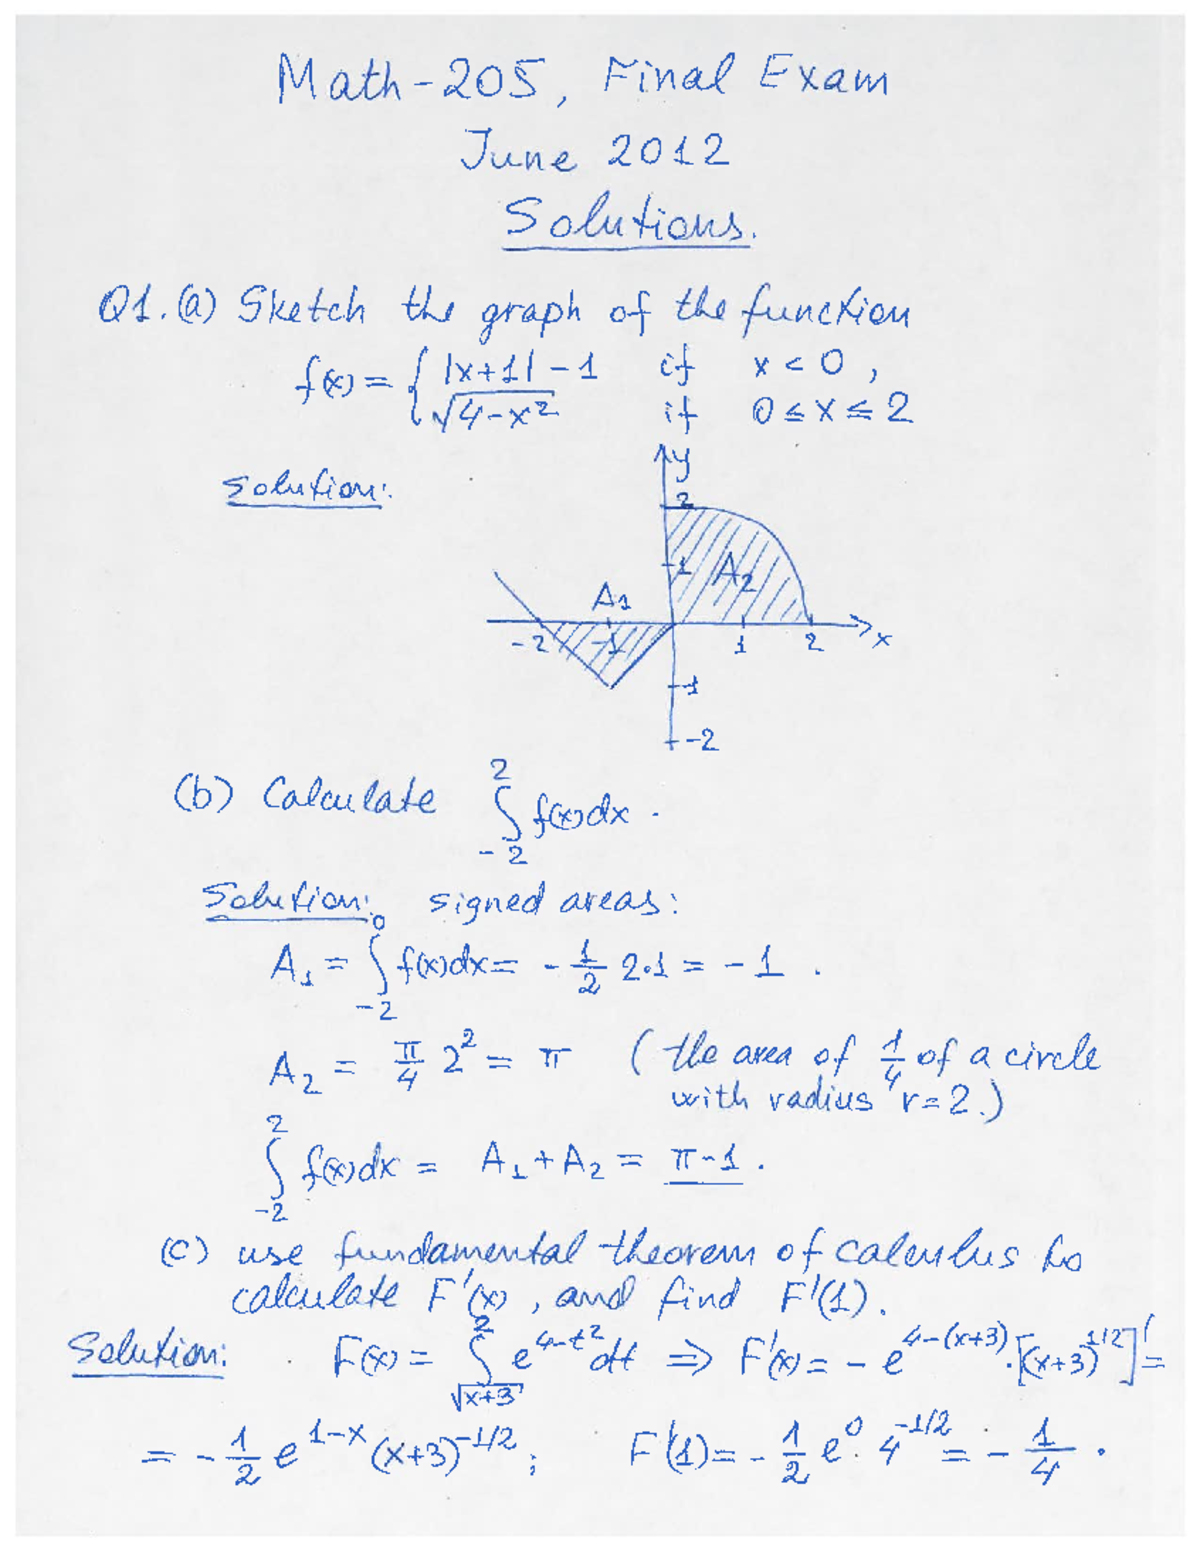 Math-205, Final Exam
June 2012
Solutions.
Q1. (a) Sketch the graph of the function
f(x) = { |x+1| - 1 if x < 0 ,
√(4-x²) if 0 ≤ x ≤ 2
Solution:
y
2
1
A₂
A₁
-2 -1 1 2 x
-1
-2
(b) Calculate ∫₋₂² f(x)dx .
Solution: signed areas:
A₁ = ∫₋₂⁰ f(x)dx = - 1/2 2·1 = -1 .
A₂ = π/4 2² = π (the area of 1/4 of a circle
with radius r=2.)
∫₋₂² f(x)dx = A₁ + A₂ = π-1 .
(c) use fundamental theorem of calculus to
calculate F'(x), and find F'(1).
Solution: F(x) = ∫_{√(x+3)}^{2} e^{4-t²} dt ⇒ F'(x) = - e^{4-(x+3)} · [(x+3)^{1/2}]' =
= - 1/2 e^{1-x} (x+3)^{-1/2} ; F'(1) = - 1/2 e⁰ · 4^{-1/2} = - 1/4 .